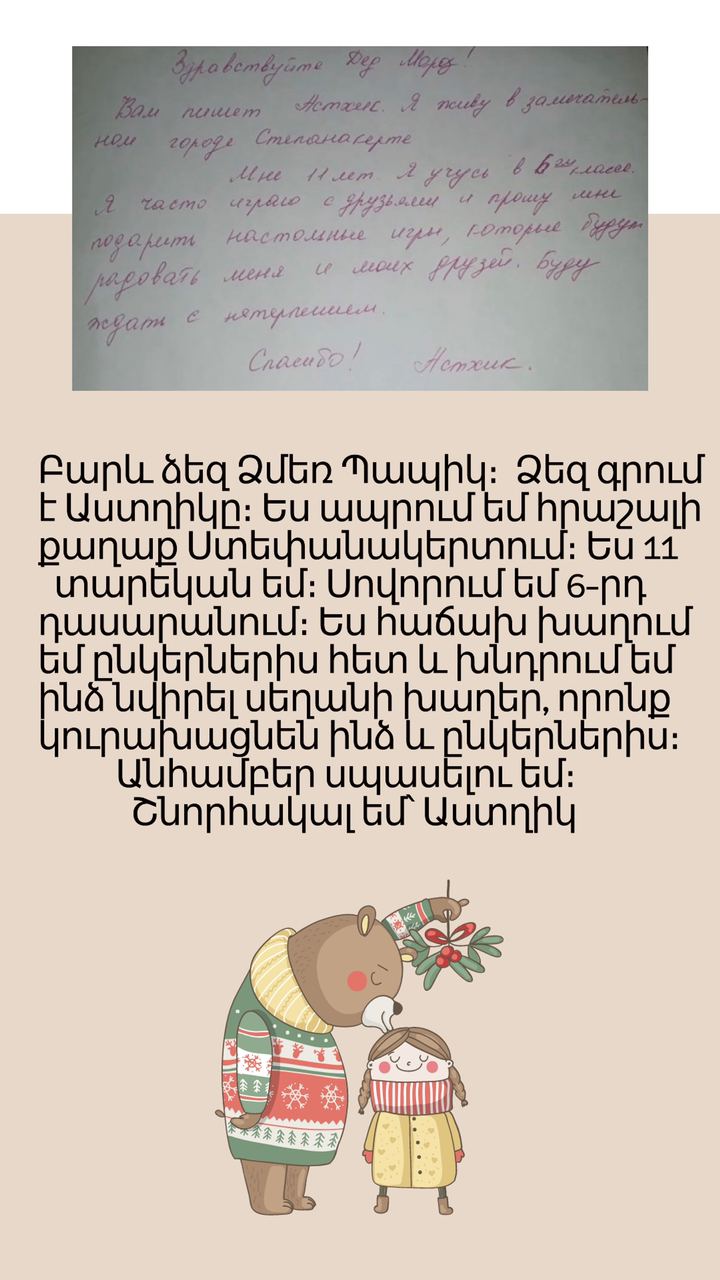 Здравствуйте Дед Мороз!
Вам пишет Астхик. Я живу в замечатель-
ном городе Степанакерте
Мне 11 лет. Я учусь в 6ом классе.
Я часто играю с друзьями и прошу мне
подарить настольные игры, которые будут
радовать меня и моих друзей. Буду
ждать с нятерпением.
Спасибо! Астхик.
Բարև ձեզ Ձմեռ Պապիկ։ Ձեզ գրում
է Աստղիկը։ Ես ապրում եմ հրաշալի
քաղաք Ստեփանակերտում։ Ես 11
տարեկան եմ։ Սովորում եմ 6-րդ
դասարանում։ Ես հաճախ խաղում
եմ ընկերներիս հետ և խնդրում եմ
ինձ նվիրել սեղանի խաղեր, որոնք
կուրախացնեն ինձ և ընկերներիս։
Անհամբեր սպասելու եմ։
Շնորհակալ եմ՝ Աստղիկ